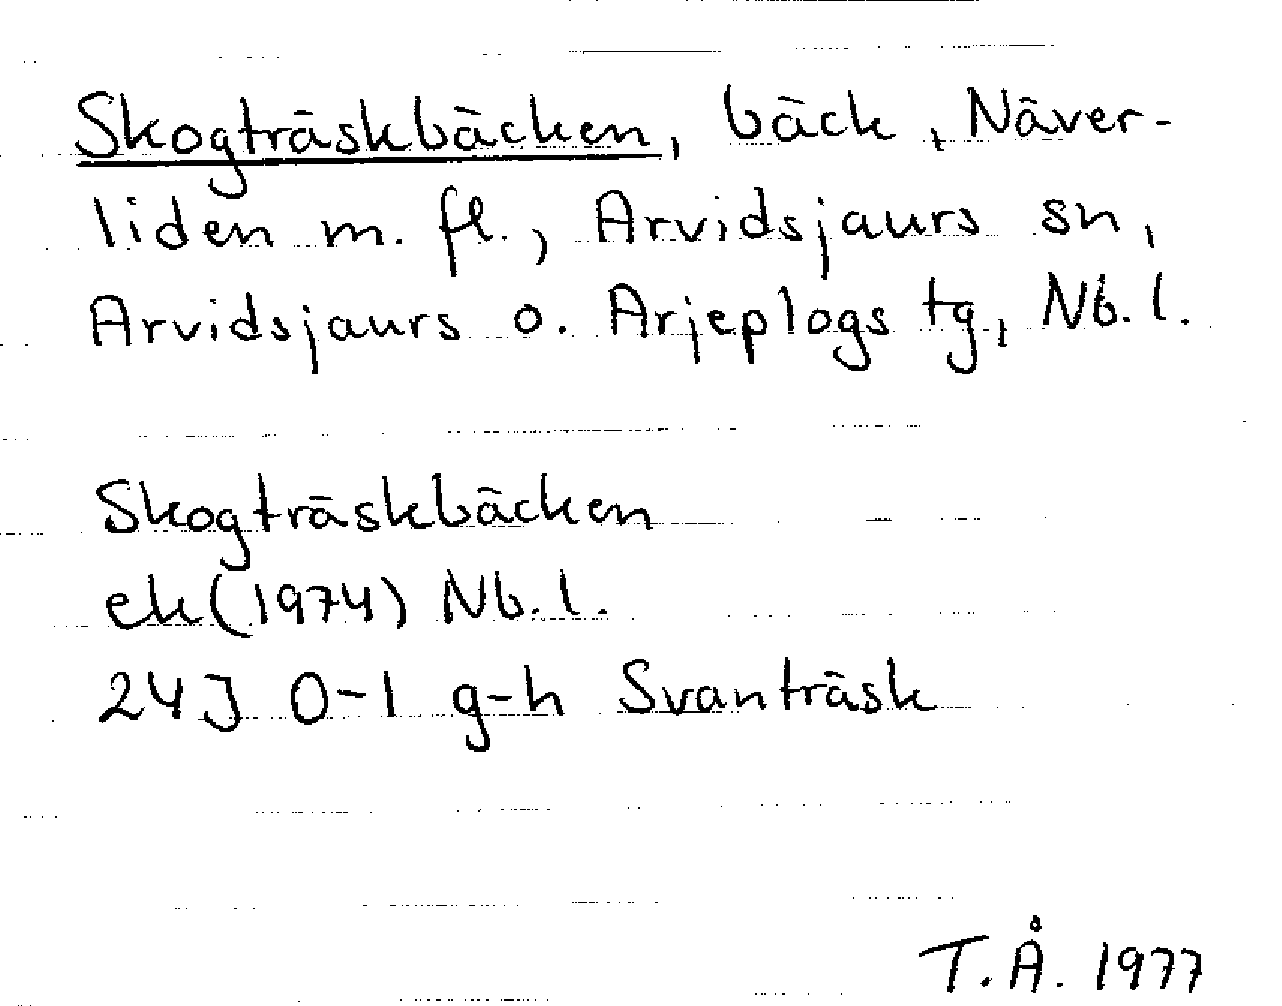 Skogträskbäcken, bäck, Näver-
liden m. fl., Arvidsjaurs sn,
Arvidsjaurs o. Arjeplogs tg, Nb. l.
Skogträskbäcken
ek (1974) Nb. l.
24J 0-1 g-h Svanträsk
T.Å. 1977